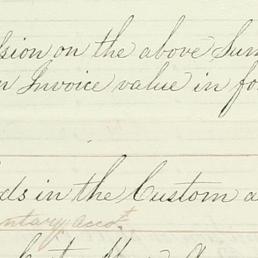 sion on the above Sum
n Invoice value in fo
ds in the Custom a
ntary acct